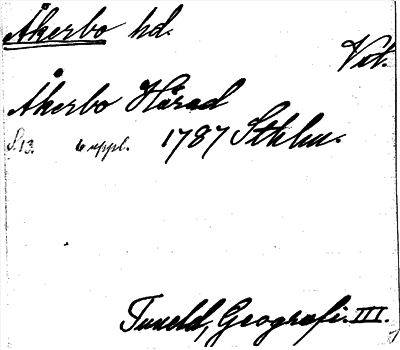 Åkerbo hd.
Vst.
Åkerbo Härad
S. 13. 6 uppl. 1787 Sthlm.
Tuneld, Geografi. III.